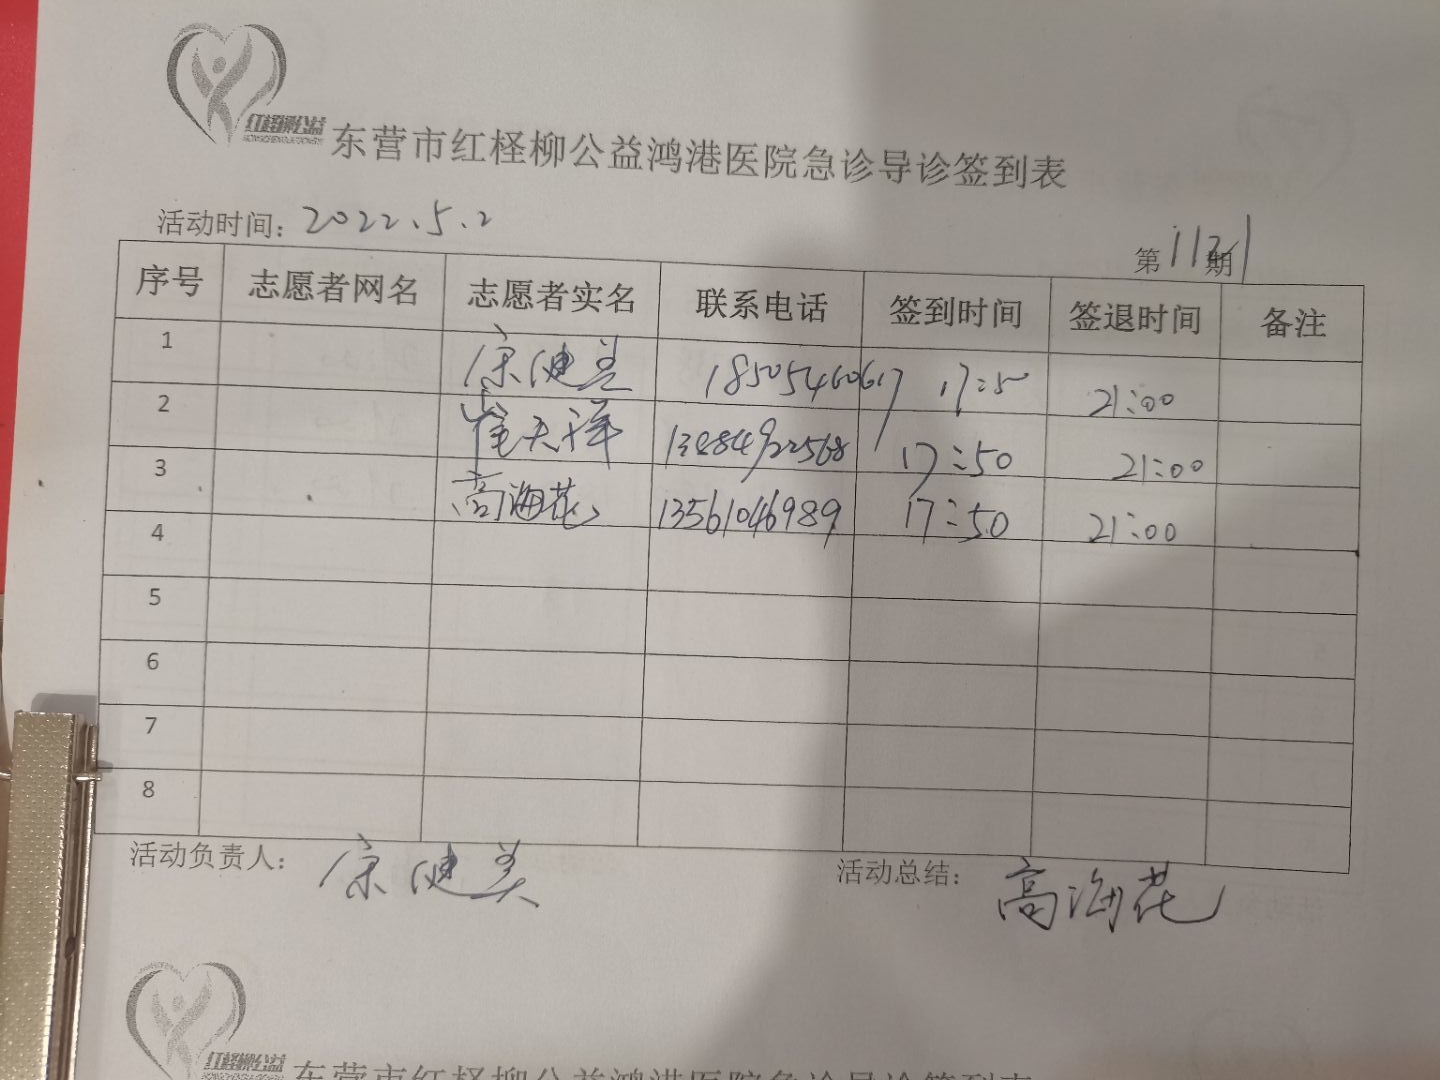 红柽柳公益
东营市红柽柳公益鸿港医院急诊导诊签到表
活动时间：2022.5.2
第 期
序号 志愿者网名 志愿者实名 联系电话 签到时间 签退时间 备注
1 宋健美 18505460617 17:5 21:00
2 崔天洋 13484922568 17:50 21:00
3 高海花 13561046989 17:50 21:00
4
5
6
7
8
活动负责人： 宋健美
活动总结： 高海花
红柽柳公益
东营市红柽柳公益鸿港医院急诊导诊签到表